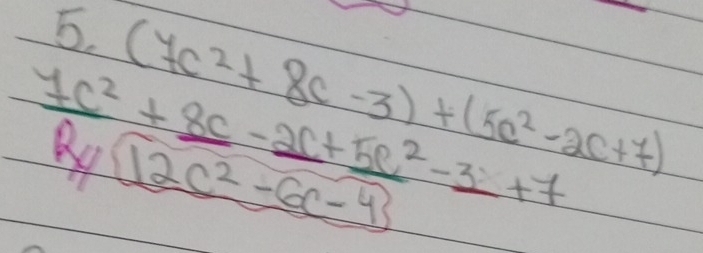 5. (7c² + 8c - 3) + (5c² - 2c + 7)
7c² + 8c - 2c + 5c² - 3 + 7
R// 12c² - 6c - 4